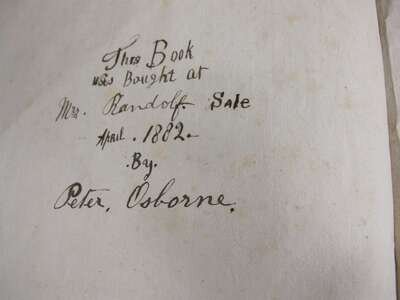 This Book
was Bought at
Mrs. Randolf. Sale
April. 1882.
.By.
Peter. Osborne.